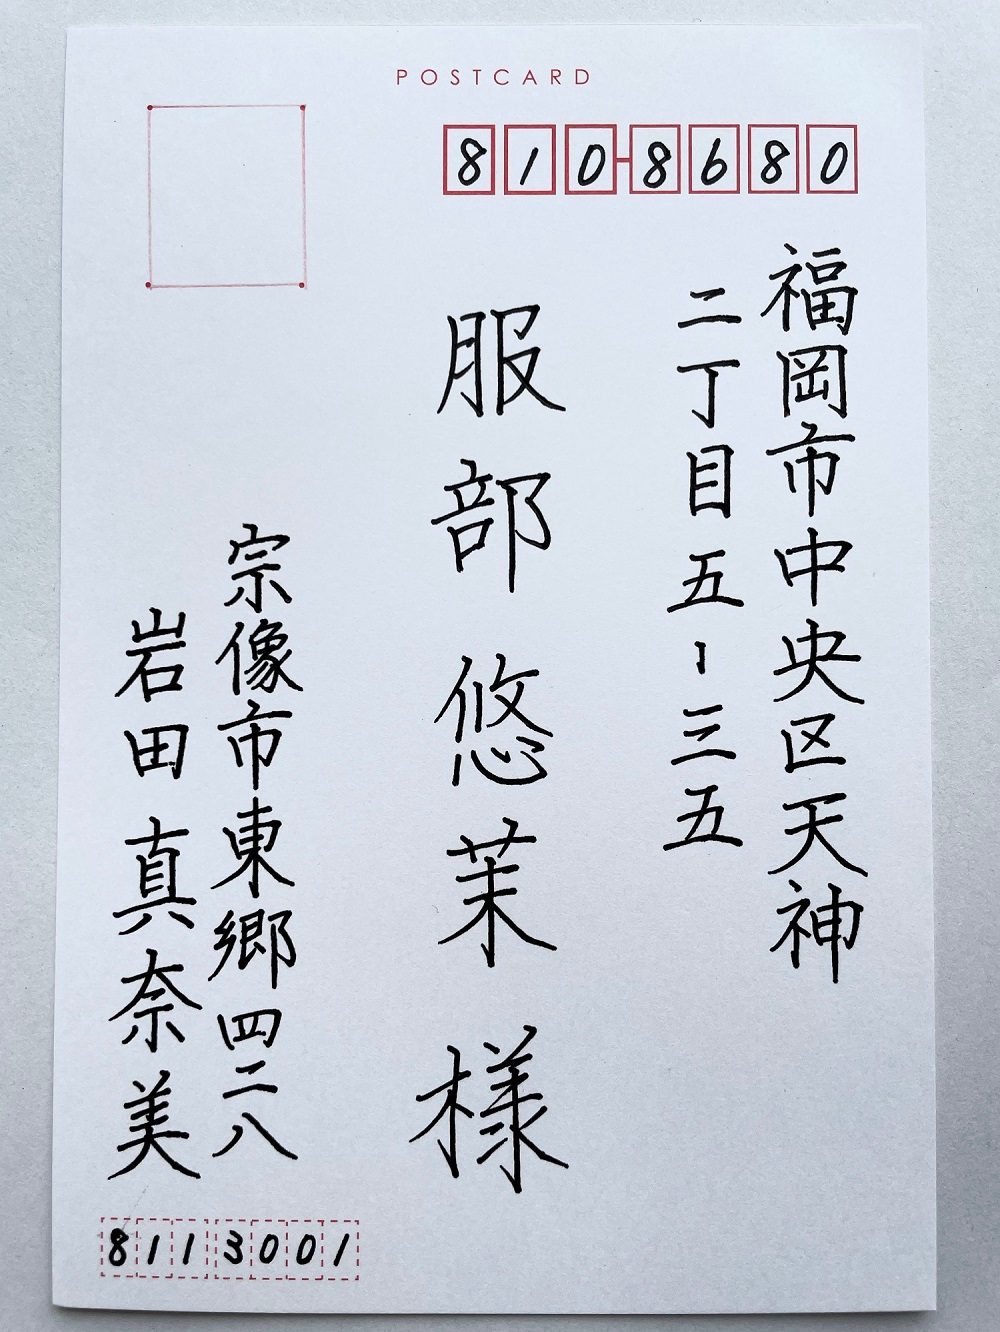 POSTCARD
810-8680
福岡市中央区天神
二丁目五-三五
服部悠茉様
宗像市東郷四二八
岩田真奈美
8113001